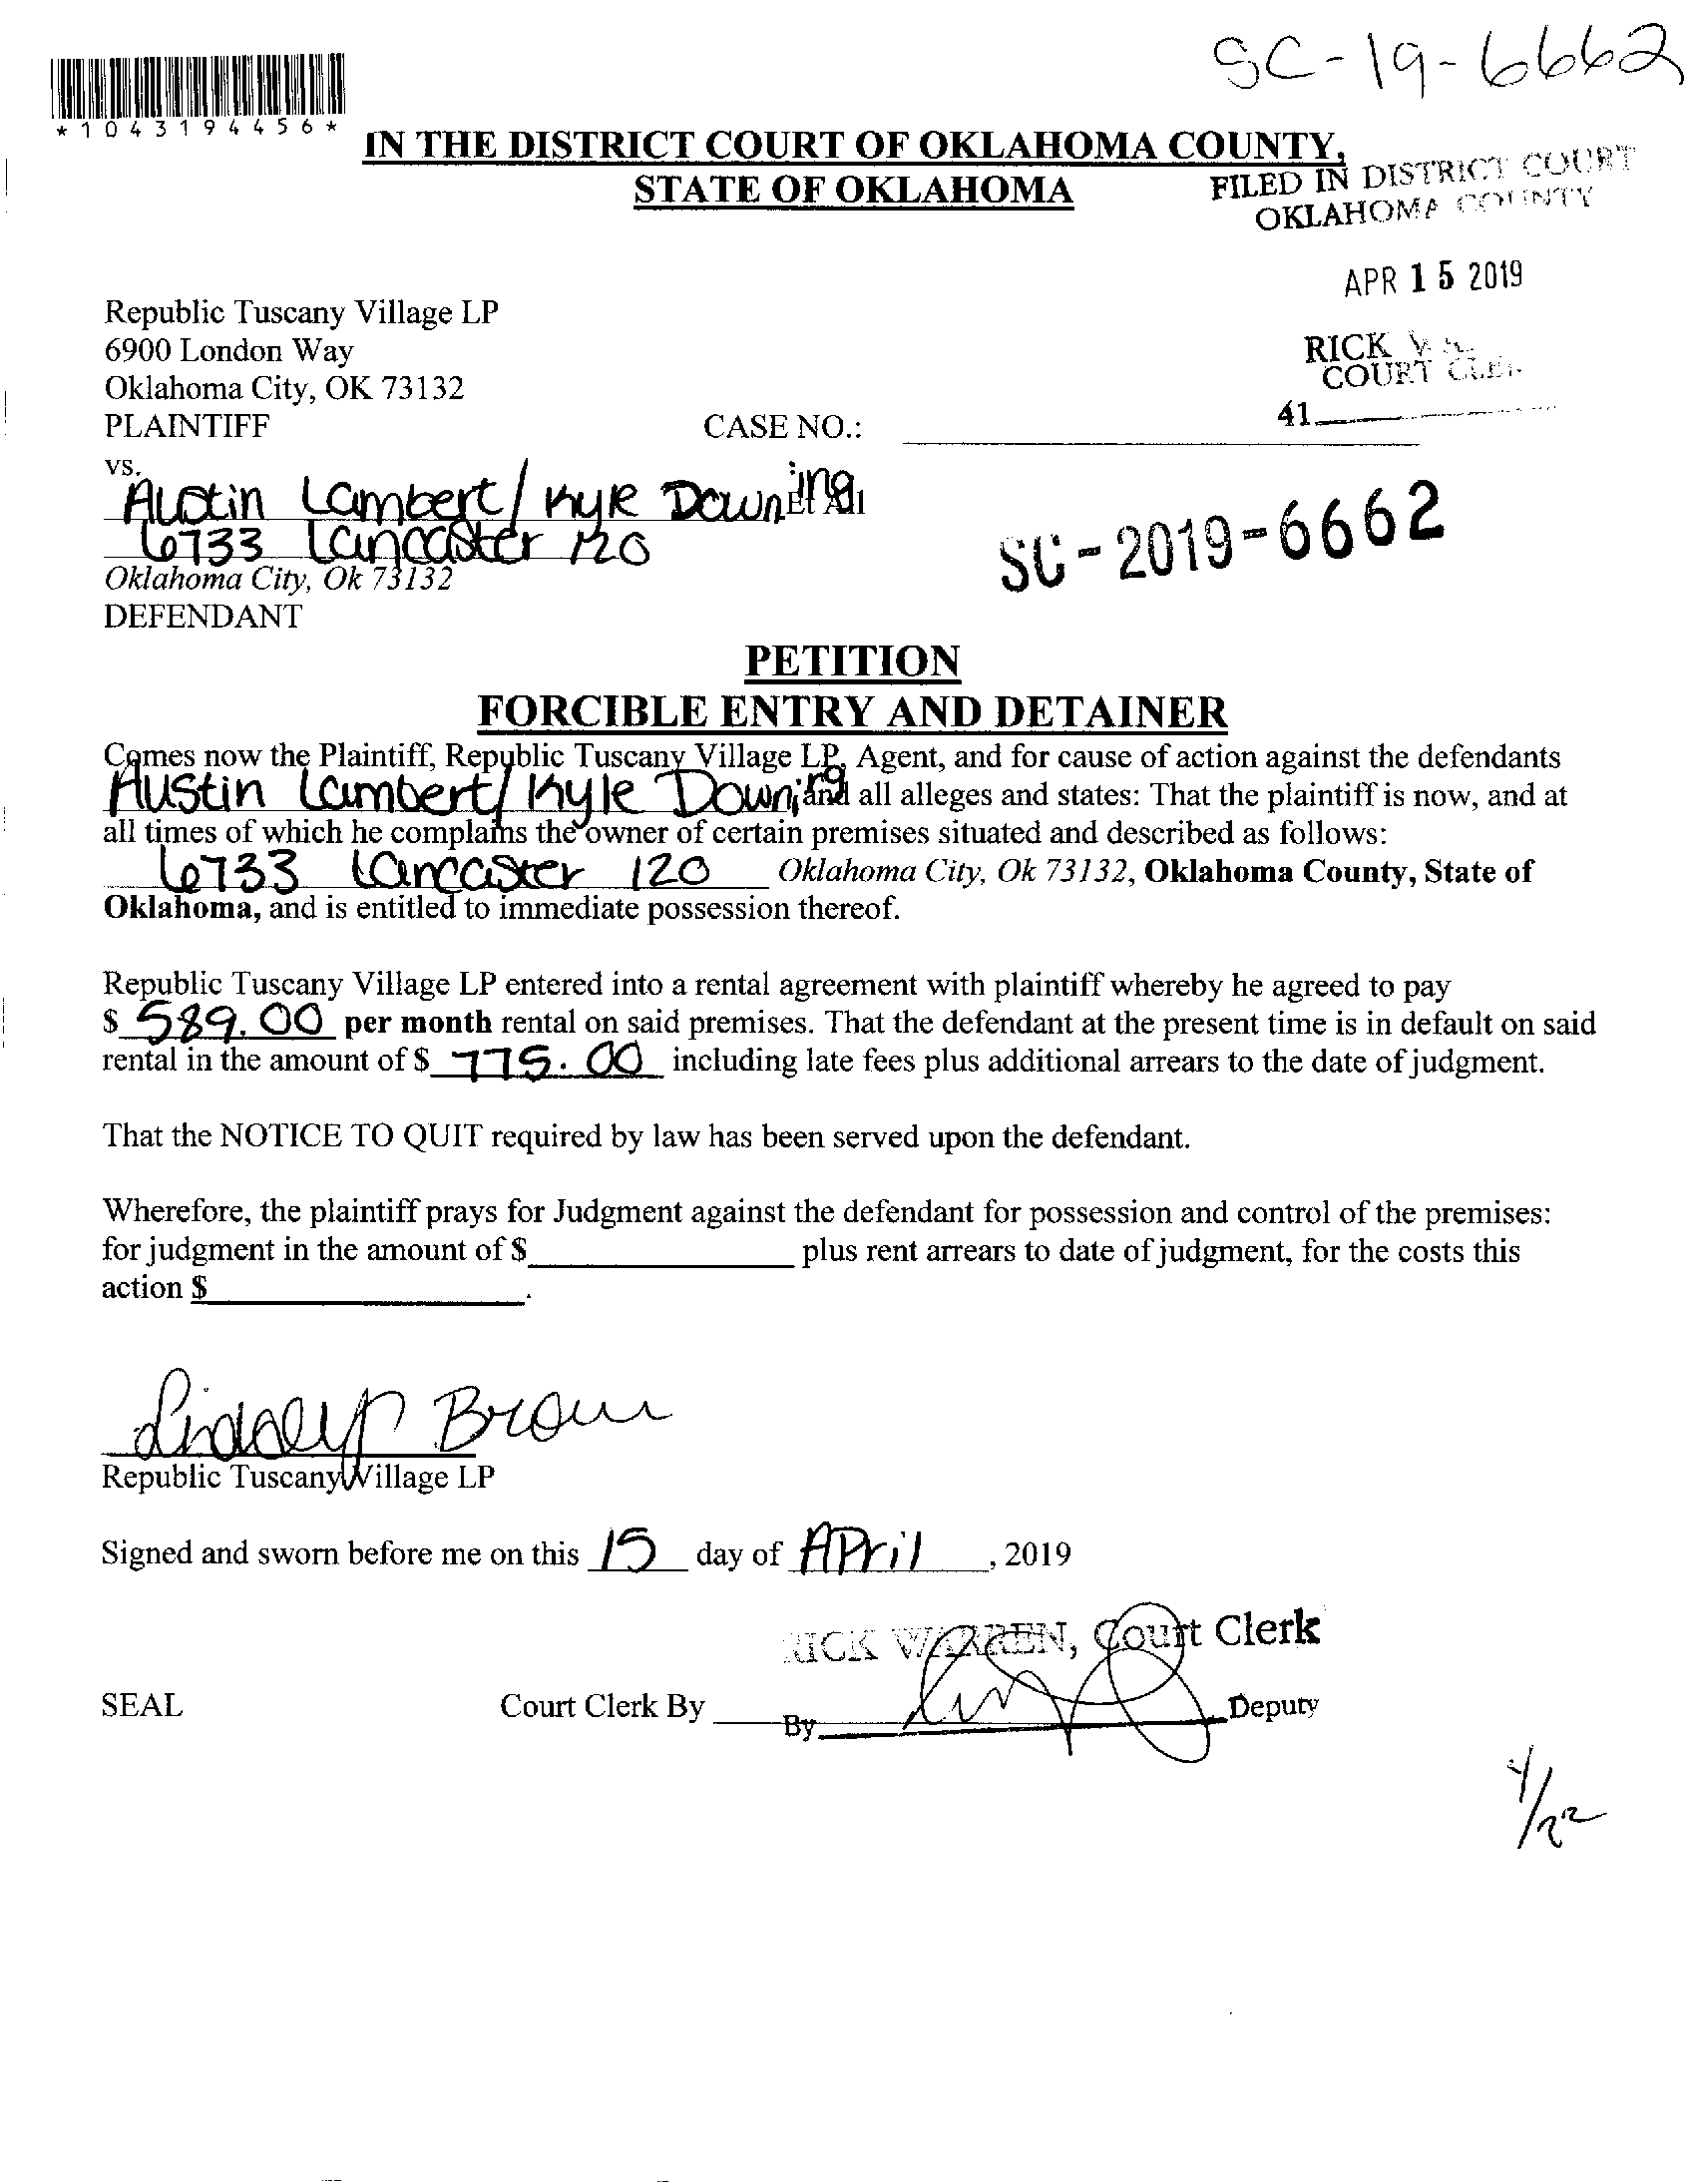 SC-19-6662
*1043194456*
IN THE DISTRICT COURT OF OKLAHOMA COUNTY,
STATE OF OKLAHOMA
FILED IN DISTRICT COURT
OKLAHOMA COUNTY
APR 15 2019
RICK
COURT
41
Republic Tuscany Village LP
6900 London Way
Oklahoma City, OK 73132
PLAINTIFF
CASE NO.:
vs.
Austin Lambert/ Kyle Downing Et All
6733 Lancaster 120
Oklahoma City, Ok 73132
DEFENDANT
SC-2019-6662
PETITION
FORCIBLE ENTRY AND DETAINER
Comes now the Plaintiff, Republic Tuscany Village LP, Agent, and for cause of action against the defendants
Austin Lambert/ Kyle Downing and all alleges and states: That the plaintiff is now, and at
all times of which he complains the owner of certain premises situated and described as follows:
6733 Lancaster 120 Oklahoma City, Ok 73132, Oklahoma County, State of
Oklahoma, and is entitled to immediate possession thereof.
Republic Tuscany Village LP entered into a rental agreement with plaintiff whereby he agreed to pay
$ 589.00 per month rental on said premises. That the defendant at the present time is in default on said
rental in the amount of $ 775.00 including late fees plus additional arrears to the date of judgment.
That the NOTICE TO QUIT required by law has been served upon the defendant.
Wherefore, the plaintiff prays for Judgment against the defendant for possession and control of the premises:
for judgment in the amount of $ plus rent arrears to date of judgment, for the costs this
action $ .
Lindsey Brown
Republic Tuscany Village LP
Signed and sworn before me on this 15 day of April, 2019
RICK WARREN, Court Clerk
SEAL Court Clerk By By Deputy
4/22